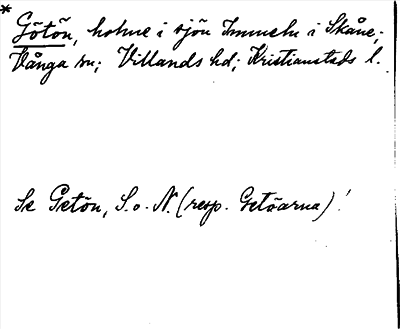 * Götön, holme i sjön Immeln i Skåne;
Vånga sn; Villands hd; Kristianstads l.
Se Getön, S. o. N. (resp. Getöarna)!